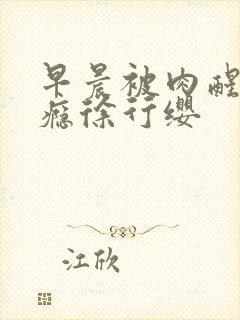 早晨被肉醒
瘾徐行缨
江欣